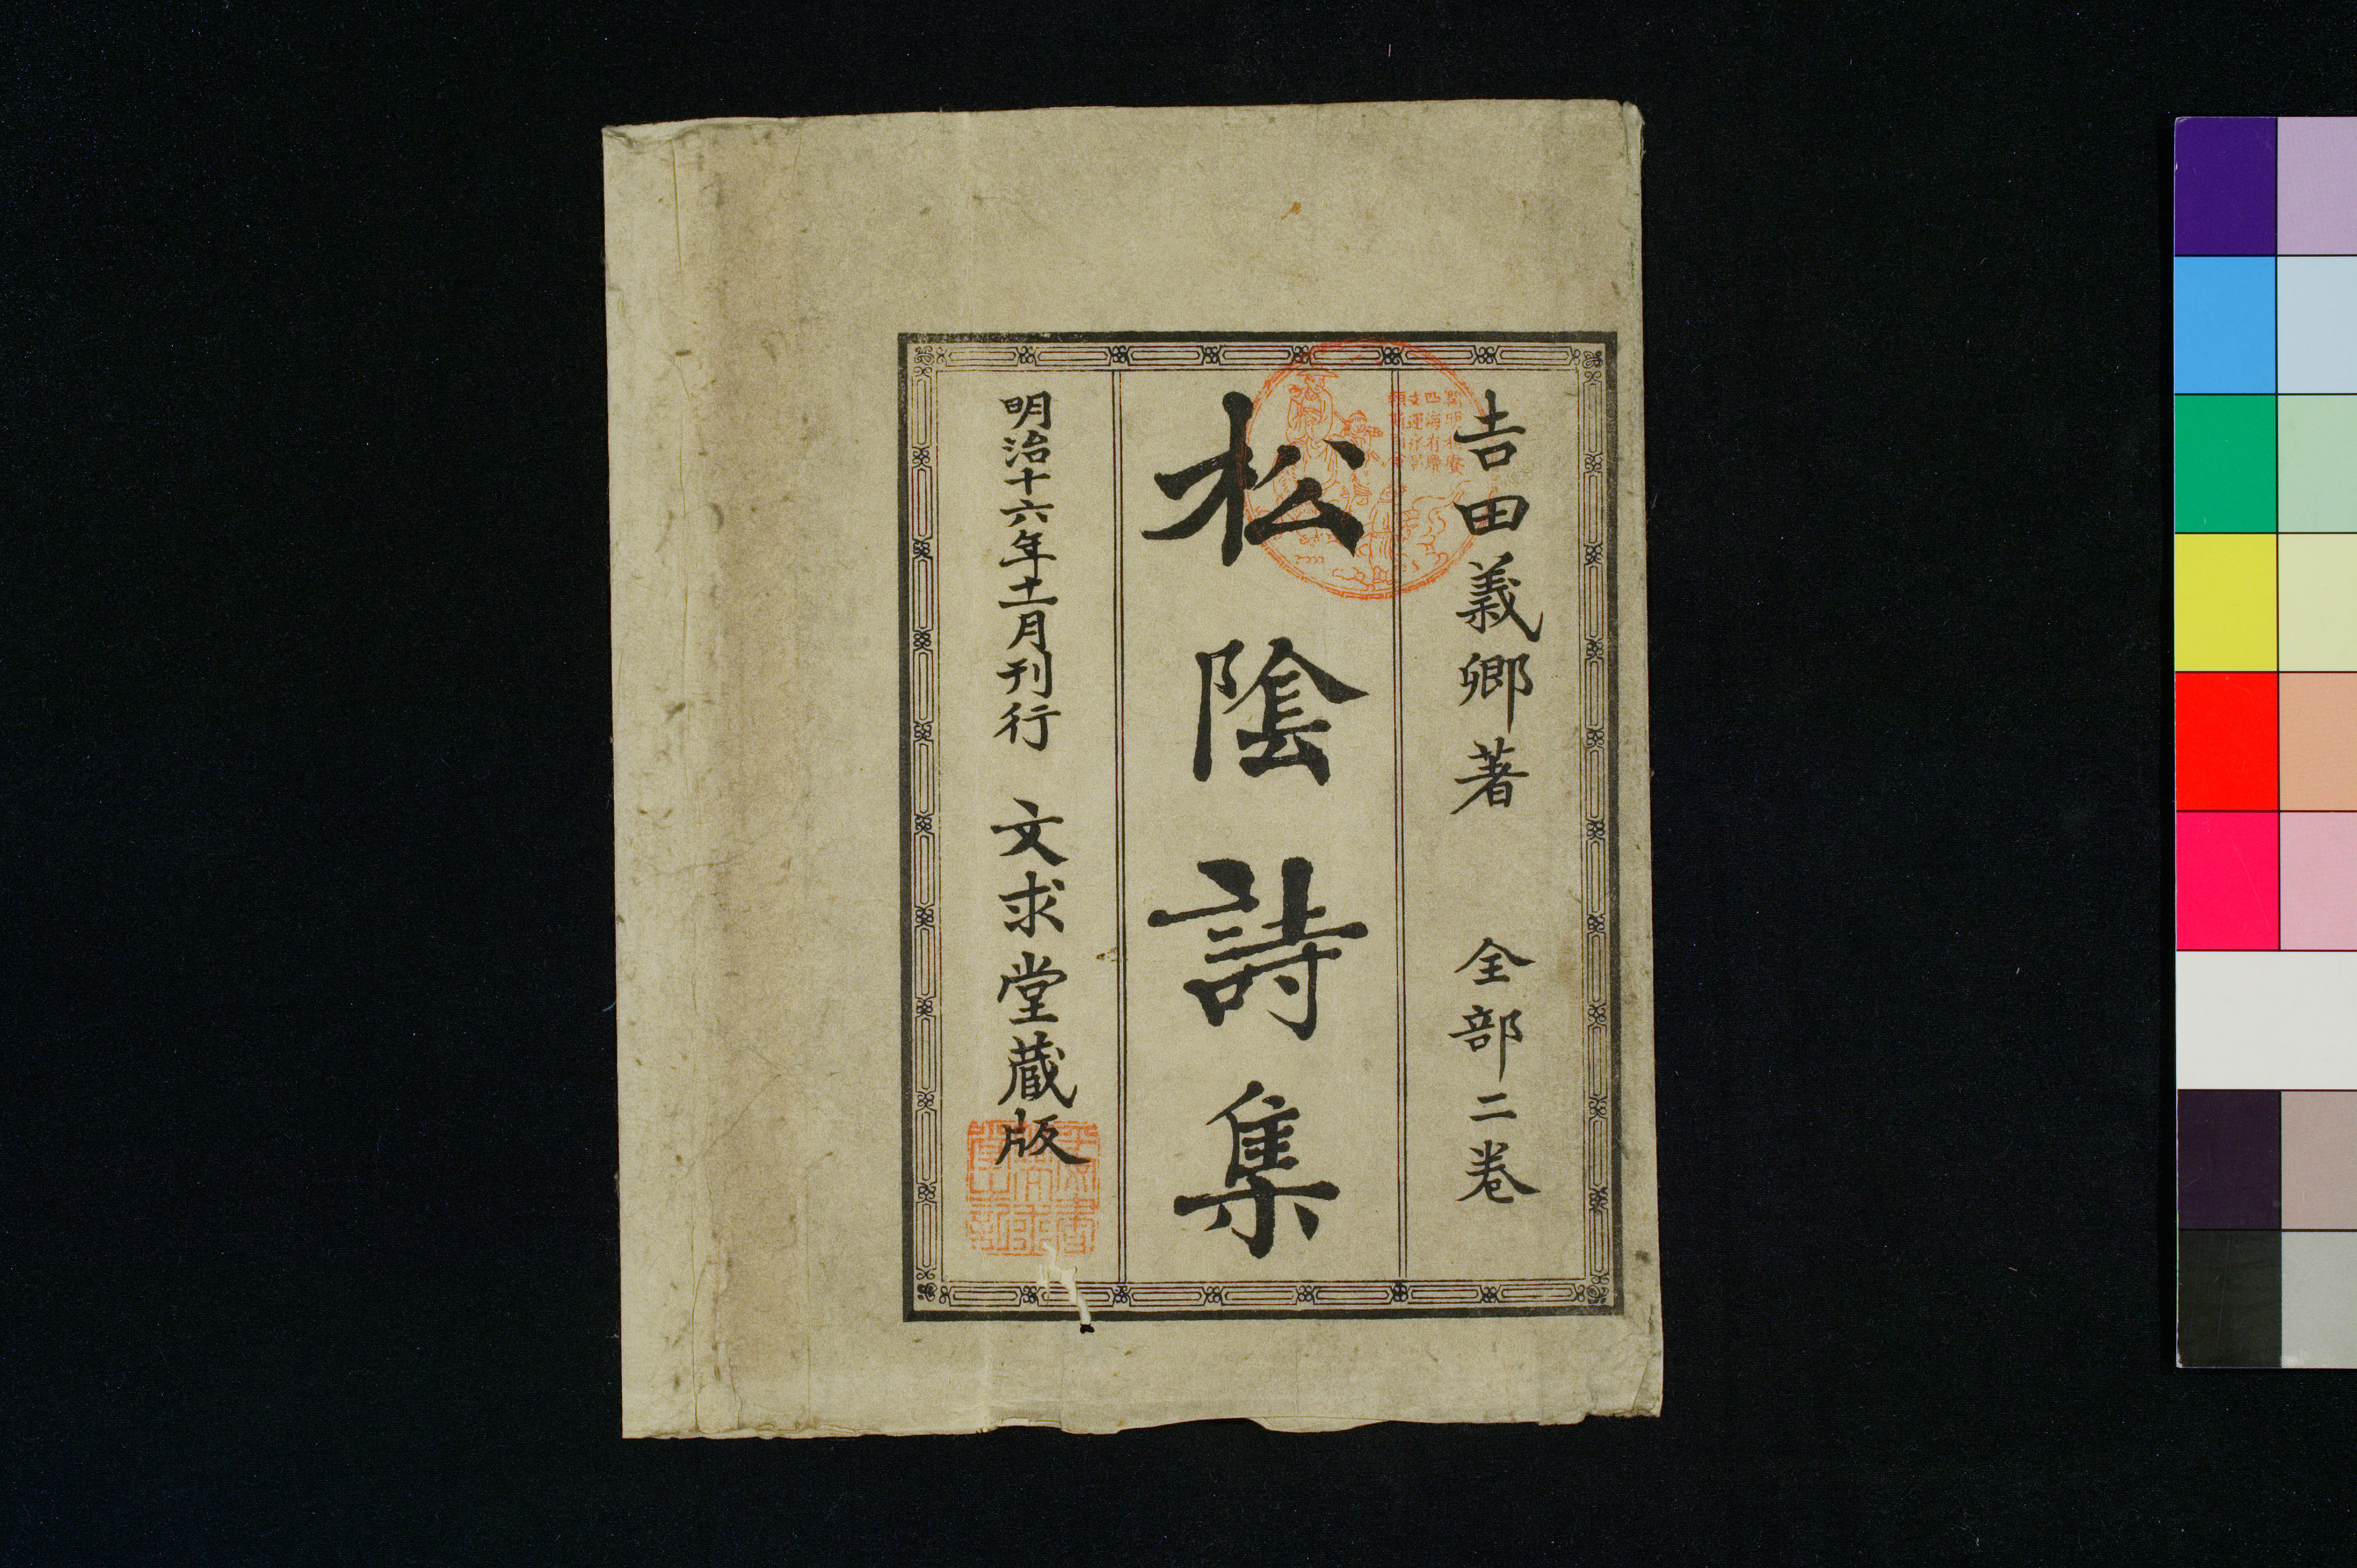 吉田義卿著 全部二巻
松陰詩集
明治十六年十一月刊行 文求堂蔵版